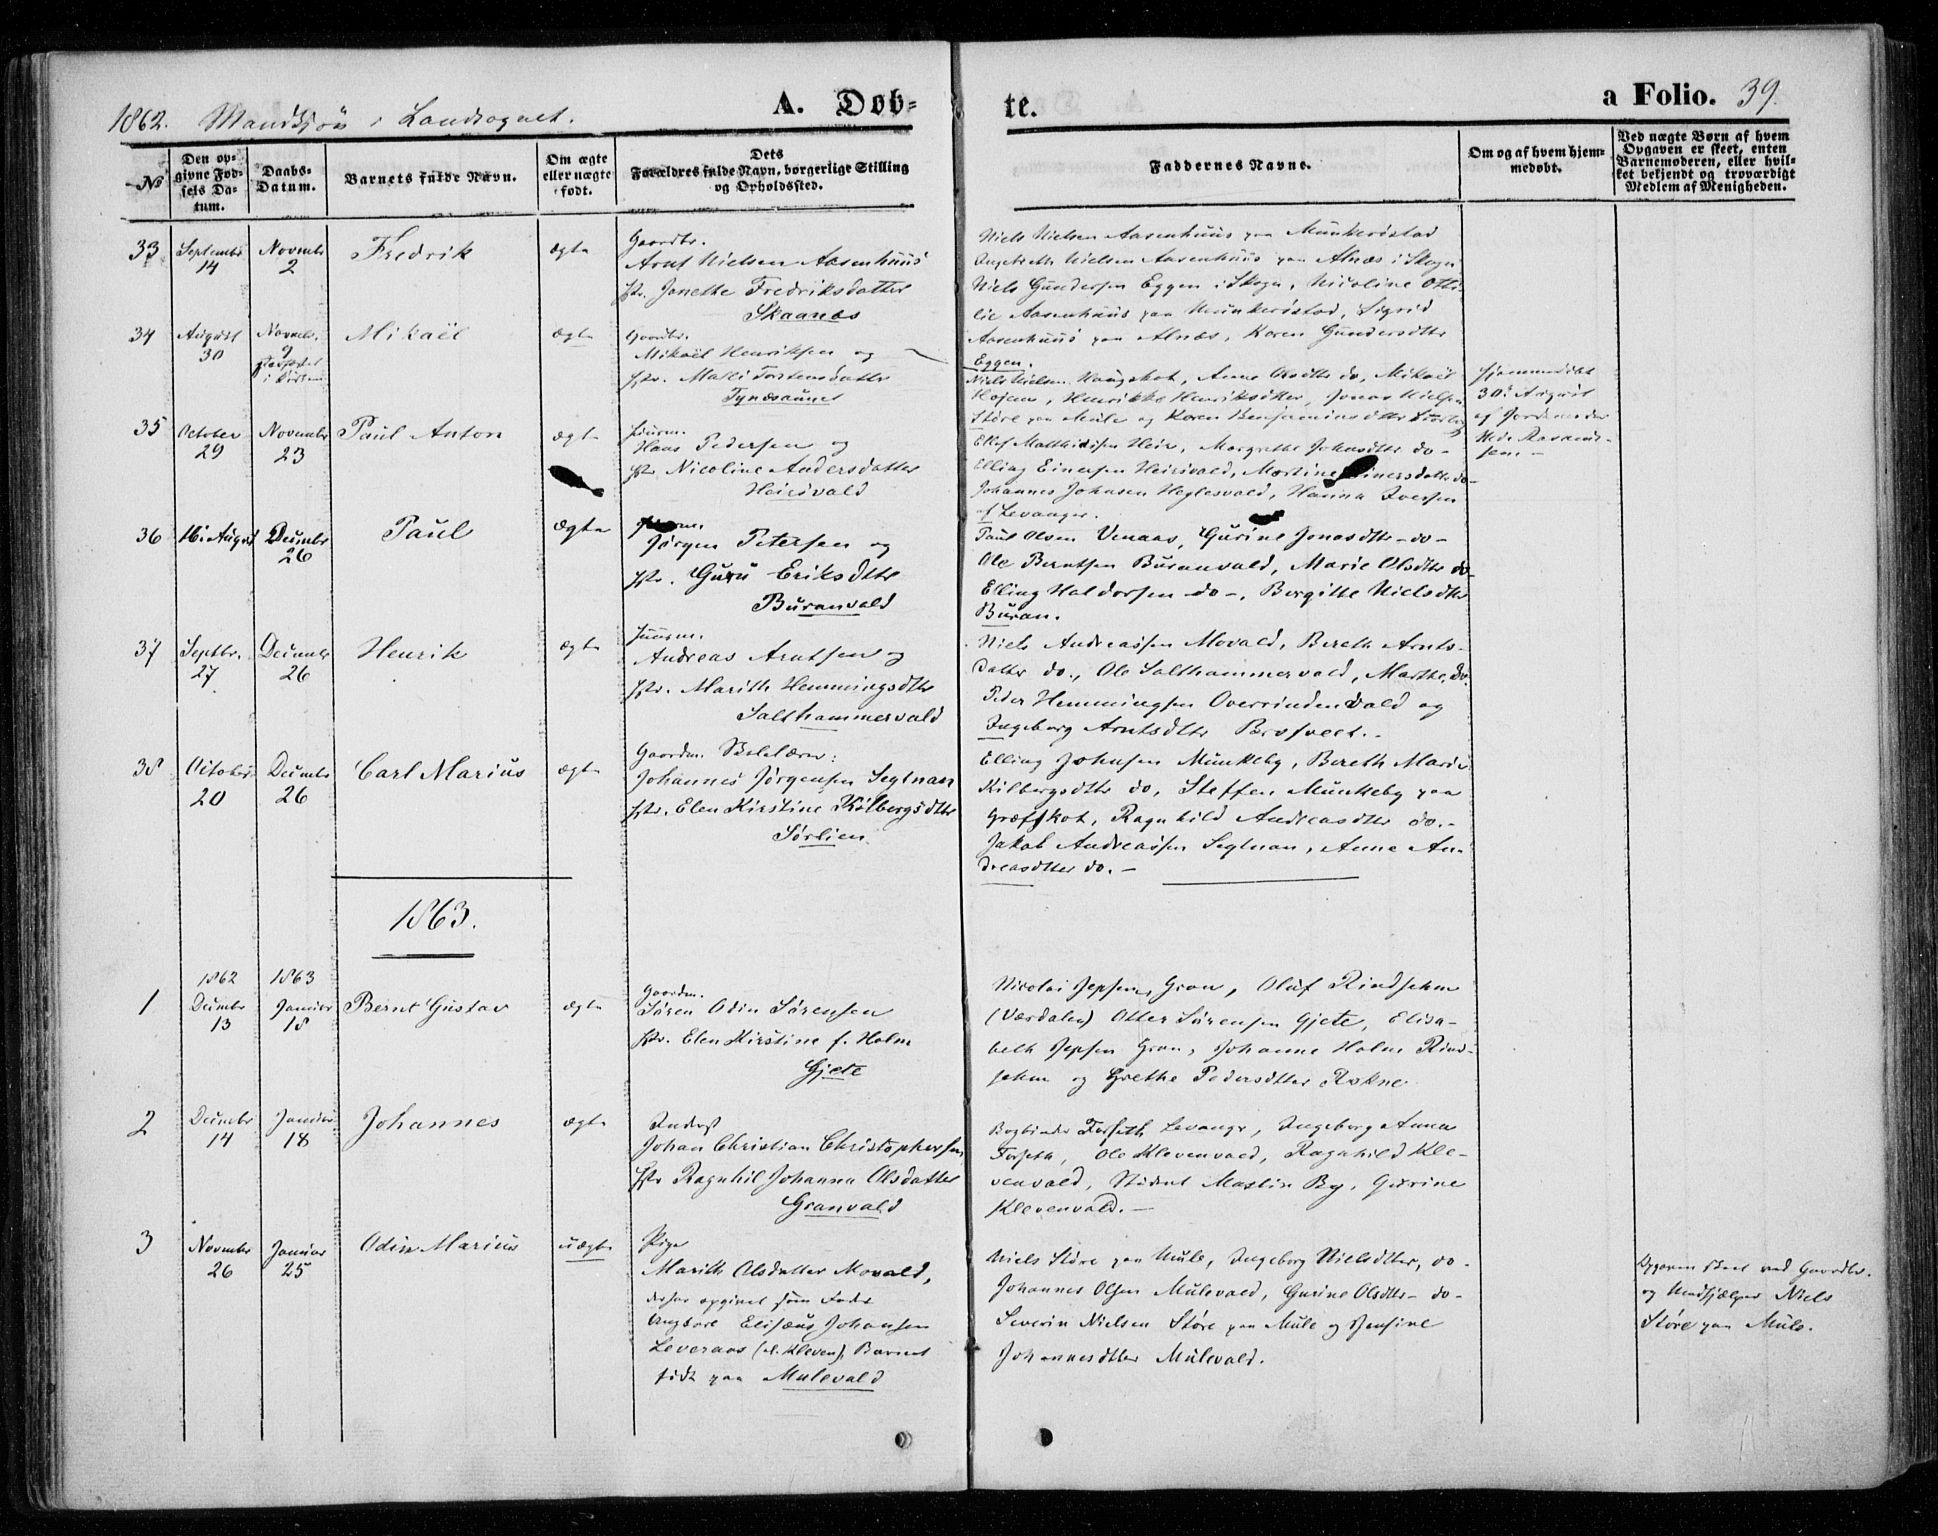 1862. Mandkjøn i Landsognet.
A. Døb-
te.
a Folio. 39.
No
Den op-
givne Fød-
sels Da-
tum.
Daabs-
Datum.
Barnets fulde Navn.
Om ægte
eller uægte
født.
Dets
Forældres fulde Navn, borgerlige Stilling
og Opholdssted.
Faddernes Navne.
Om og af hvem hjem-
medøbt.
Ved uægte Børn af hvem
Opgaven er skeet, enten
Barnemoderen, eller hvil-
ket bekjendt og troværdigt
Medlem af Menigheden.
33
Septembr
14
Novembr
2
Fredrik
ægte
Gaardbr.
Arnt Nielsen Aasenhuus
Hstr. Janette Fredriksdatter
Skaanes
Niels Nielsen Aasenhuus paa Munkerøstad
Nielsen Aasenhuus paa Alnæs i Skogn
Niels Gundersen Eggen i Skogn, Nicoline Otti-
lie Aasenhuus paa Munkerøstad, Sigrid
Aasenhuus paa Alnæs, Karen Gundersdtter
Eggen.
34
August
30
Novemb.
9
Mikaël
ægte
Gaardbr.
Mikaël Henriksen og
Hstr. Malli Torstensdatter
Tynæsaunet
Niels Nielsen Haugskot, Anne Olsdtter do, Mikaël
Hojem, Henrikke Henriksdtter, Jonas Nielsen
Støre paa Mule og Karen Benjaminsdtter
Hjemmedøbt
30' August
af Jordemoder
35
October
29
Novembr
23
Paul Anton
ægte
Huusm.
Hans Pedersen og
Hstr. Nicoline Andersdatter
Heirsvald
Matthiasen Heir, Margrethe Johnsdtter do-
Elling Einersen Heirsvald, Martine Einersdatter do-
Johannes Johnsen Heglesvald, Hanna Iversen
af Levanger.
36
16' August
Decembr
26
Paul
ægte
Jørgen Petersen og
Hstr. Guru Eriksdtter
Buranvald
Paul Olsen Venaas, Gurine Jonasdtter - do -
Ole Berntsen Buranvald, Marie Olsdtter do
Elling Haldorsen do -, Bergitte Nielsdtter
Buran.
37
Septbr.
27
Decembr
26
Henrik
ægte
Huusm.
Andreas Arntsen og
Hstr. Marith Hemmingsdtter
Salthammervald
Niels Andreassen Movald, Bereth Arnts-
datter do., Ole Salthammervald, Marthe do.
Peder Hemmingsen Overrindenvald og
Ingeborg Arntsdtter
38
October
20
Decembr
26
Carl Marius
ægte
Gaardm. Skolelærer:
Johannes Jørgensen Segtnan
Hstr. Elen Kirstine Kilbergsdtter
Sørlien
Elling Johnsen Munkeby, Bereth Marie
Kilbergsdtter do, Steffen Munkeby paa
Græfskot, Ragnhild Andreasdtter do.-
Jakob Andreassen Segtnan, Anne An-
dreasdtter do.-
1863.
1
1862
Decembr
13
1863
Januar
18
Bernt Gustav
ægte
Gaardm.
Søren Odin Sørensen
Hstr. Elen Kirstine f. Holm
Gjete
Nicolai Jepsen, Gran, Oluf Rindsehm
(Værdalen) Otter Sørensen Gjete, Elisa-
beth Jepsen Gran, Johanne Holm Rind-
sehm og Grethe Pedersdtter Rokne
2
Decembr
14
Januar
18
Johannes
ægte
Inderst
Johan Christian Christophersen,
Hstr Ragnhil Johanna Olsdatter
Granvald
Bogbinder Forseth Levanger, Ingeborg Anna
Forseth, Ole Klevenvald, Ragnhild Kle-
venvald, Student Mastin By, Gurine
Klevenvald.-
3
Novembr
26
Januar
25
Odin Marius
uægte
Pige
Marith Olsdatter Movald,
derhar opgivet som Fader
Ungkarl Elisæus Johansen
Leveraas (el. Kleven), Barnet
født paa Mulevald
Niels Støre paa Mule, Ingeborg Nielsdtter, do.
Johannes Olsen Mulevald, Gurine Olsdtter - do -
Severin Nielsen Støre paa Mule og Jensine
Johannesdtter Mulevald.
Opgaven skeet ved Gaardbr.
og Medhjælper Niels
Støre paa Mule.